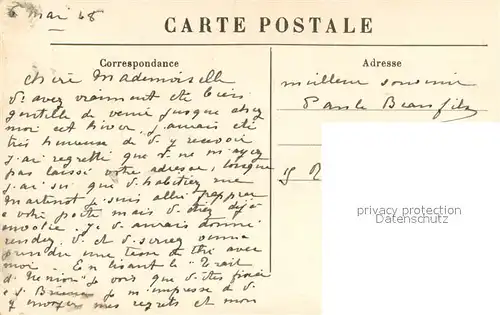 6 mai 48
CARTE POSTALE
Correspondance
Adresse
Chère Mademoiselle
V. avez vraiment été bien
gentille de venir jusque chez
moi cet hiver. j'aurais été
très heureuse de v. y recevoir
j'ai regretté que v. ne m'ayez
pas laissé votre adresse, lorsque
j'ai su que v. habitiez rue
Martinot je suis allée frapper
à votre porte mais v. étiez déjà
envolée. Je v. aurais donné
rendez v. et v. seriez venue
prendre une tasse de thé avec
moi. En lisant le "Trait
d'Union" je vois que v. êtes fixée
à St je m'empresse de v.
y envoyer mes regrets et mon
meilleur souvenir
Paule
privacy protection
samlerforum